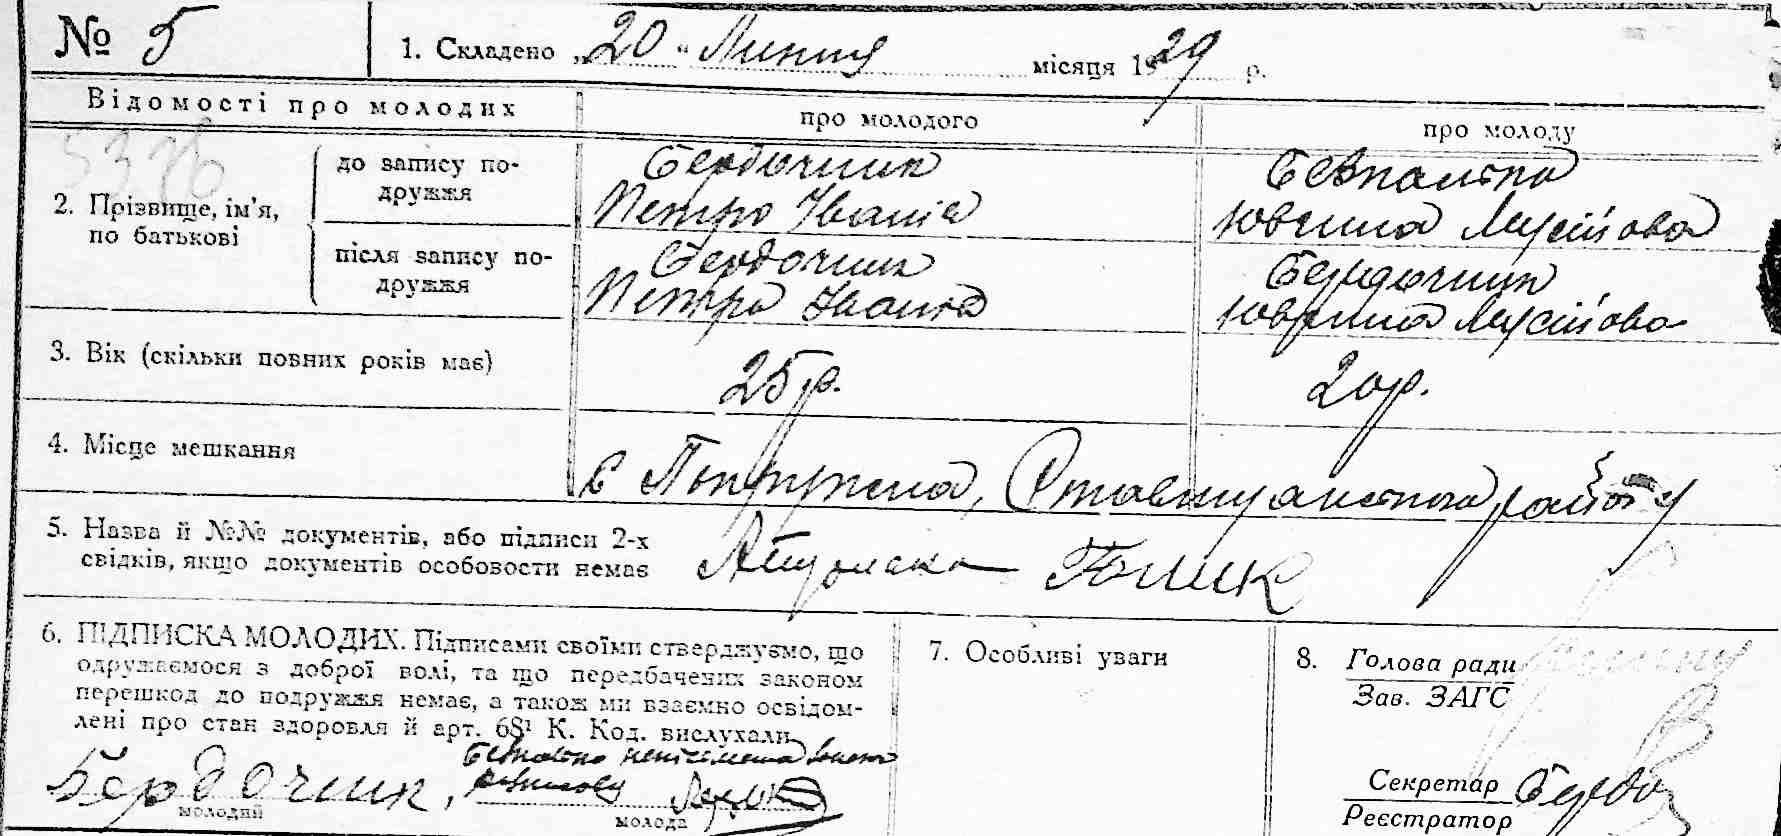 № 5
1. Складено „20“ Липня місяця 1929 р.
Відомості про молодих
про молодого
про молоду
5376
2. Прізвище, ім'я, по батькові
до запису подружжя
Бердочник
Петро Іванів
Безпалько
Ювгина Мусійова
після запису подружжя
Бердочник
Петро Іванів
Бердочник
Ювгина Мусійова
3. Вік (скільки повних років має)
25 р.
20 р.
4. Місце мешкання
с Попружна, Ставищанського району
5. Назва й №№ документів, або підписи 2-х
свідків, якщо документів особовости немає
6. ПІДПИСКА МОЛОДИХ. Підписами своїми стверджуємо, що
одружаємося з доброї волі, та що передбачених законом
перешкод до подружжя немає, а також ми взаємно освідом-
лені про стан здоровля й арт. 68¹ К. Код. вислухали
Бердочник,
молодий
Безпалько неписьмена
молода
7. Особливі уваги
8. Голова ради
Зав. ЗАГС
Секретар
Реєстратор